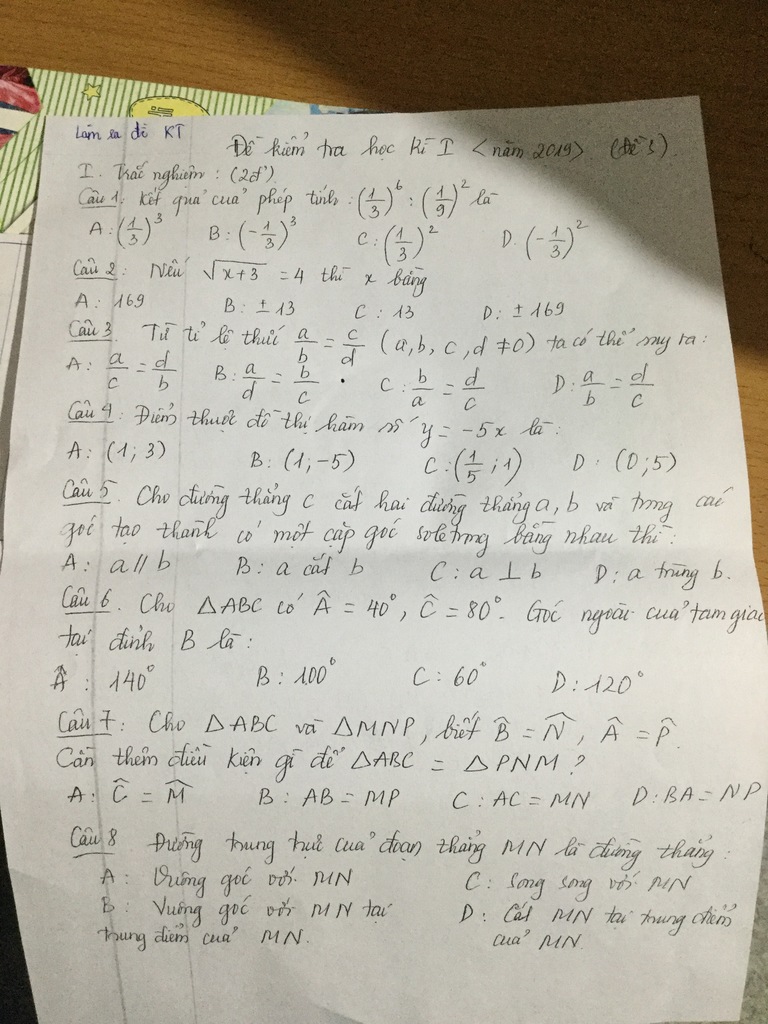 Làm ra đề KT
Đề kiểm tra học kì I <năm 2019> (đề 3).
I. Trắc nghiệm: (2đ)
Câu 1: Kết quả của phép tính: (1/3)^6 : (1/9)^2 là
A: (1/3)^3 B: (-1/3)^3 C: (1/3)^2 D. (-1/3)^2
Câu 2: Nếu √(x+3) = 4 thì x bằng
A: 169 B: ±13 C: 13 D: ±169
Câu 3. Từ tỉ lệ thức a/b = c/d (a,b,c,d ≠0) ta có thể suy ra:
A: a/c = d/b B: a/d = b/c C: b/a = d/c D: a/b = d/c
Câu 4: Điểm thuộc đồ thị hàm số y = -5x là:
A: (1; 3) B: (1;-5) C: (1/5 ; 1) D: (0;5)
Câu 5. Cho đường thẳng c cắt hai đường thẳng a, b và trong các
góc tạo thành có một cặp góc sole trong bằng nhau thì:
A: a // b B: a cắt b C: a ⊥ b D: a trùng b.
Câu 6. Cho △ABC có Â = 40°, Ĉ = 80°. Góc ngoài của tam giác
tại đỉnh B là:
Â : 140° B: 100° C: 60° D: 120°
Câu 7: Cho △ABC và △MNP, biết B̂ = N̂, Â = P̂.
Cần thêm điều kiện gì để △ABC = △PNM?
A: Ĉ = M̂ B: AB = MP C: AC = MN D: BA = NP
Câu 8 Đường trung trực của đoạn thẳng MN là đường thẳng:
A: Vuông góc với MN C: Song song với MN
B: Vuông góc với MN tại D: Cắt MN tại trung điểm
trung điểm của MN. của MN.